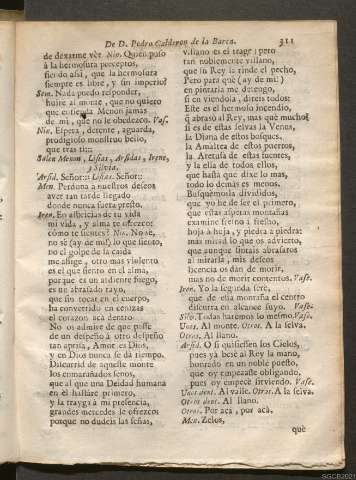 De D. Pedro Calderon de la Barca. 311
de dexarme vèr. Nin. Quien puso
à la hermosura preceptos,
siendo assi, que la hermosura
siempre es libre, y sin imperio?
Sem. Nada puedo responder,
huirè al monte, que no quiero
que entienda Menon jamas
de mi, que no le obedezco. Vase.
Nin. Espera, detente, aguarda,
prodigioso monstruo bello,
que tras ti::
Salen Menon, Lisias, Arsidas, Irene,
y Silvia.
Arsid. Señor:: Lisias. Señor::
Men. Perdona à nuestros deseos
aver tan tarde llegado
donde nunca fuera presto.
Iren. En albricias de tu vida
mi vida, y alma te ofrezco:
còmo te sientes? Nin. No sè,
no sè (ay de mi!) lo que siento,
no el golpe de la caida
me aflige, otro mas violento
es el que siento en el alma,
porque es un ardiente fuego,
es un abrasado rayo,
que sin tocar en el cuerpo,
ha convertido en cenizas
el corazon acà dentro.
No os admire de que passe
de un despeño à otro despeño
tan aprisa, Amor es Dios,
y en Dios nunca se dà tiempo.
Discurrid de aqueste monte
los enmarañados senos,
que al que una Deidad humana
en èl hallare primero,
y la trayga à mi presencia,
grandes mercedes le ofrezco:
porque no dudeis las señas,
villano es el trage; pero
tan noblemente villano,
que un Rey la rinde el pecho,
Pero para què (ay de mi!)
en pintarla me detengo,
si en viendola, direis todos:
Este es el hermoso incendio,
q̃ abrasò al Rey, mas què mucho!
si es de estas selvas la Venus,
la Diana de estos bosques,
la Amaltea de estos puertos,
la Aretusa de estas fuentes,
y la ella de todos ellos,
que hasta que dixe lo mas,
todo lo demàs es menos.
Busquèmosla divididos,
que yo he de ser el primero,
que estas asperas montañas
examine freno à freno,
hoja à hoja, y piedra à piedra:
mas mirad lo que os advierto,
que aunque sintais abrasaros
al mirarla, mis deseos
licencia os dàn de morir,
mas no de morir contentos. Vase.
Iren. Yo la segunda serè,
que de esta montaña el centro
discurra en alcance suyo. Vase.
Silv. Todas harèmos lo mesmo. Vase.
Unos. Al monte. Otros. A la selva.
Otros. Al llano.
Arsid. O si quisiessen los Cielos,
pues yà besè al Rey la mano,
honrado en un noble puesto,
que oy empezasse obligando,
pues oy empecè sirviendo. Vase.
Unos dent. Al valle. Otros. A la selva.
Otros dent. Al llano.
Otros. Por acà, por acà.
Men. Zelos,
què
SGCB2021